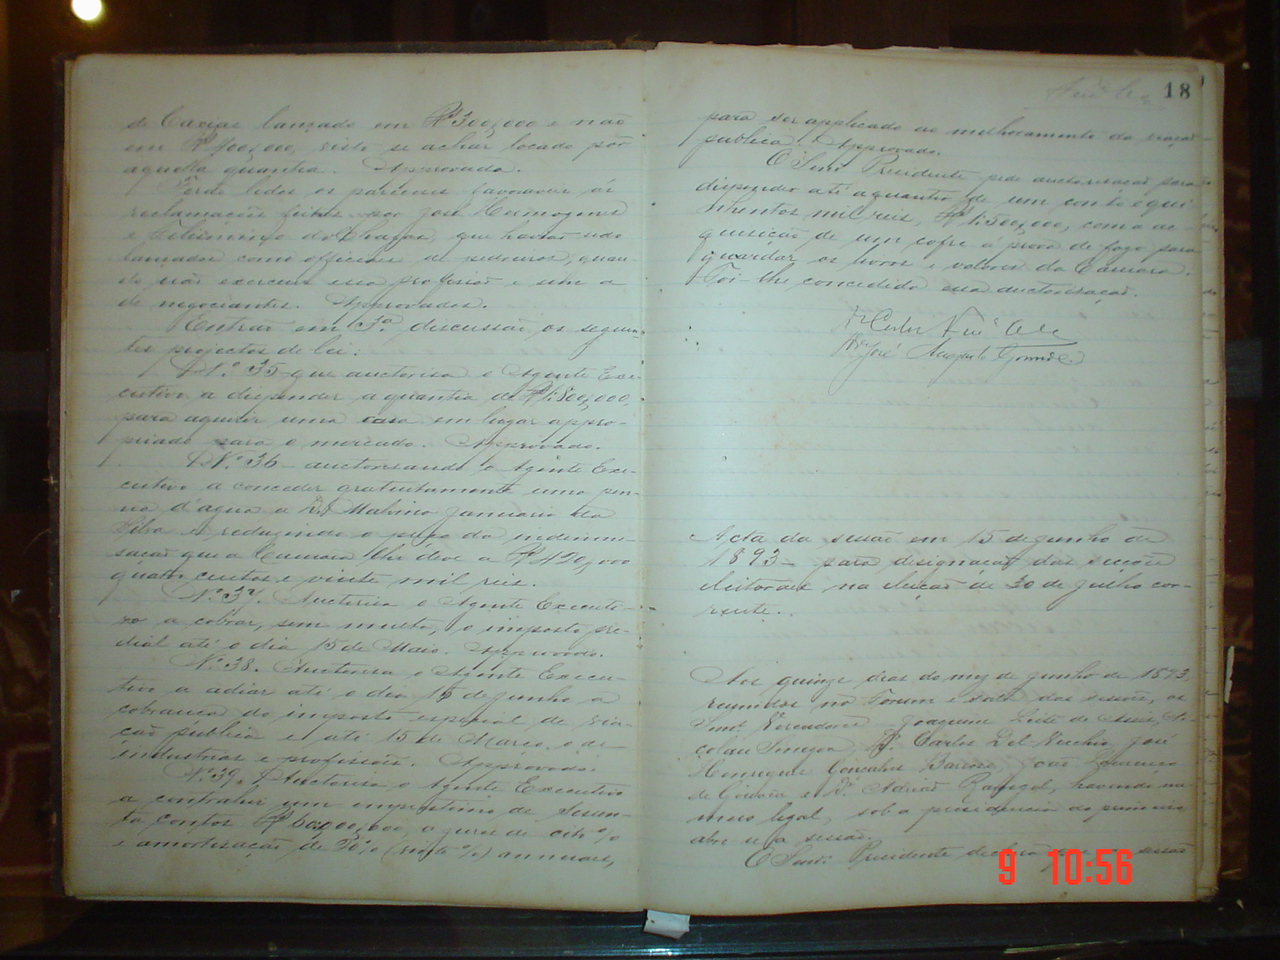 de Caveas lançado em Rs 300,000 e não
em Rs 400,000, visto se achar locado por
aquella quantia. Approvado.
Forão lidos os pareceres favoraveis ás
reclamações feitas por José Hamogenes
e das Chagas, que havião sido
lançados como officiaes de pedreiros, quan-
do não exercem essa profissão e um a
de negociantes. Approvados.
Entrão em 3ª discussão os seguin-
tes projectos de lei:
Nº 35 que auctorisa o Agente Exe-
cutivo a dispender a quantia de Rs 1:800,000,
para aquirir uma casa em lugar appro-
priado para o mercado. Approvado.
Nº 36 auctorisando o Agente Exe-
cutivo a conceder gratuitamente uma pen-
na d'agua a D. Malvina Januaria da
Silva e reduzindo o da indemni-
sação que a Camara lhe deve a Rs 420,000
quatro centos e vinte mil reis.
Nº 37. Auctorisa o Agente Executi-
vo a cobrar, sem multa, o imposto pre-
dial até o dia 15 de Maio. Approvado.
Nº 38. Auctorisa o Agente Execu-
tivo a adiar até o dia 15 de Junho a
cobrança do imposto especial de via-
ção publica e até 15 de Março, o de
industrias e profissões. Approvado.
Nº 39. Auctorisa o Agente Executivo
a contrahir um emprestimo de sessen-
ta contos Rs 60,000,000, a juros de oito %
e amortisação de 20% (vinte %) annuaes,
18
para ser applicado ao melhoramento da viação
publica. Approvado.
O Senr Presidente pede auctorisação para
dispender até a quantia de um conto e qui-
nhentos mil reis, Rs 1:500,000, com a ac-
quisição de um cofre á prova de fogo para
guardar os livros e valores da Camara.
Foi-lhe concedida essa auctorisação.
Dr Carlos
José Augusto
Acta da sessão em 15 de Junho de
1893 para designação das secções
eleitoraes na eleição de 30 de Julho cor-
rente.
Aos quinze dias do mez de Junho de 1893
reunidos no Forum e sala das sessões, os
Senrs Vereadores Joaquim Leite de
Dr. Carlos Del Vecchio, José
Henrique Gonçalves Barroso, João Lourenço
de e Dr. Adrião Rangel, havendo nu-
mero legal, sob a presidencia do primeiro
abre-se a sessão.
O Senr Presidente declara que a sessão
9 10:56